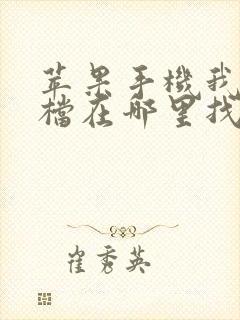 苹果手機我
檔在哪里找
崔秀英